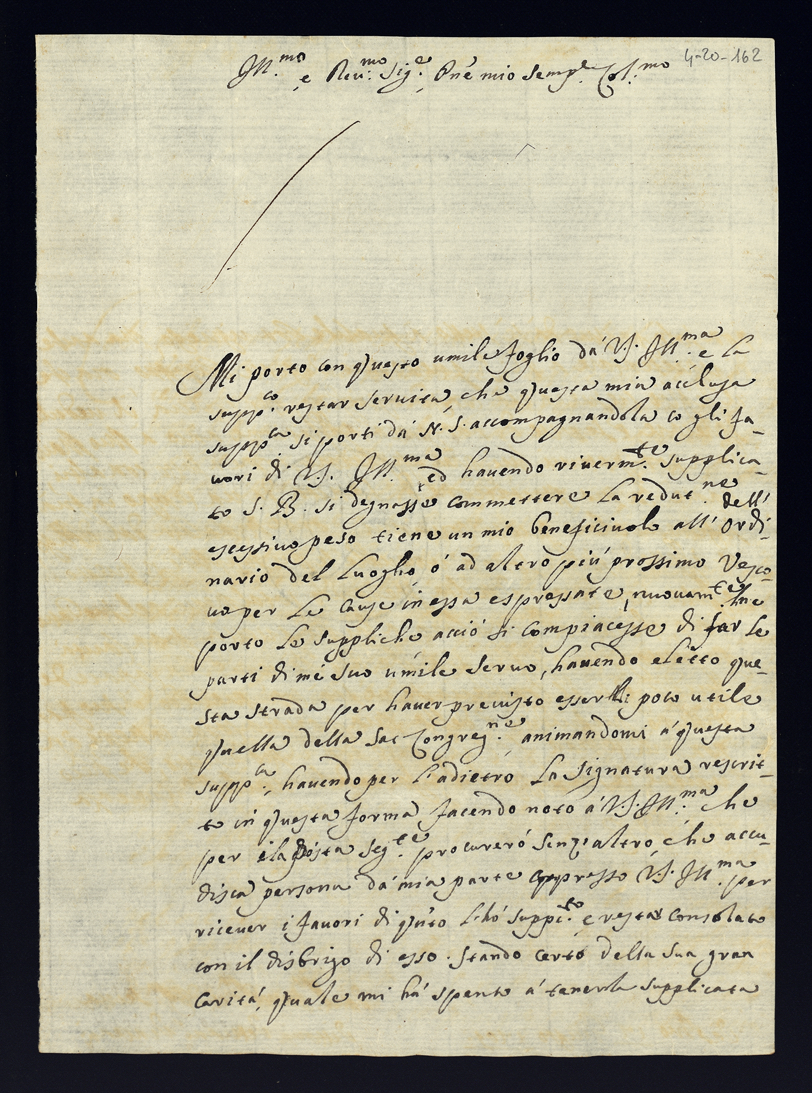 4-20-162
Ill.mo e Rev.mo Sig.e Pñe mio Semp.e Col.mo
Mi porto con questo umile foglio da V.S. Ill.ma e la
supp.co restar servita che questa mia acclusa
supp.ca si porti da N.S. accompagnandola co gli fa-
uori di V.S. Ill.ma ed hauendo riverm.te supplica-
to S.B. si degnasse commettere la redut.ne dell'
escessivo peso tiene un mio beneficiuolo all' Ordi-
nario del Luogho ó ad altro più prossimo Vesco-
uo per le cause in essa espressate, nuouam.te le
porto le suppliche acciò si compiacesse di far le
parti di me suo umile seruo, hauendo eletto que-
sta strada per hauer previsto esserli poco utile
quella della Sac. Congreg.ne animandomi a questa
supp.ca, hauendo per l'adietro la Signatura rescrit-
to in questa forma facendo noto a V.S. Ill.ma che
per la posta seg.te procureró senz'altro che accu-
disca persona da mia parte appresso V.S. Ill.ma per
riceuer i fauori di q̃sto l'hó supp.to e restar consolato
con il disbrigo di esso. Stando certo della sua gran
Carità, quale mi há spento a tenerla supplicata